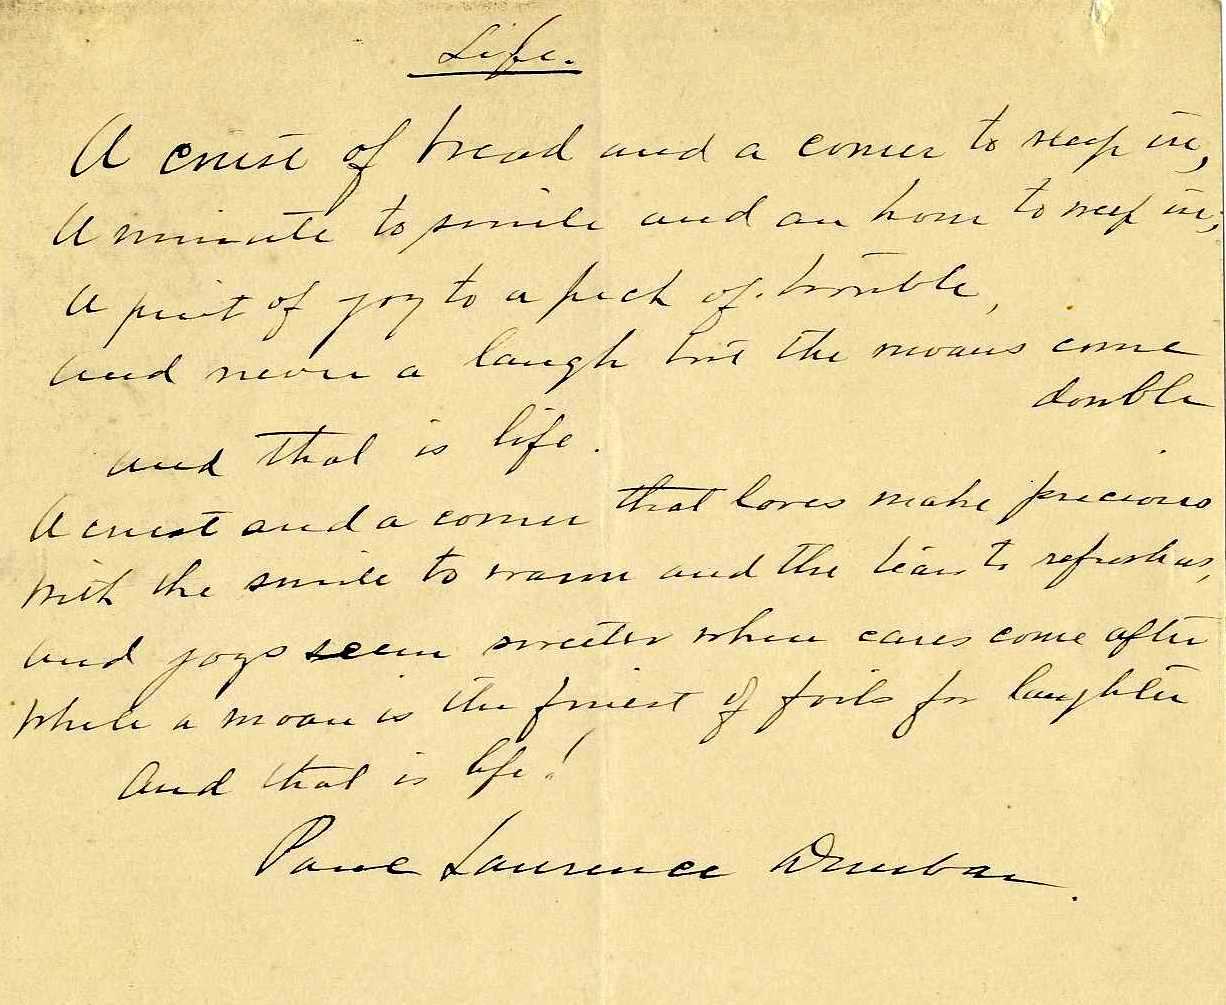 Life.
A crust of bread and a corner to sleep in,
A minute to smile and an hour to weep in,
A pint of joy to a peck of trouble,
And never a laugh but the moans come
double
And that is life.
A crust and a corner that loves make precious
With the smile to warm and the tears to refresh us,
And joys seem sweeter when cares come after
While a moan is the finest of foils for laughter
And that is life!
Paul Laurence Dunbar.